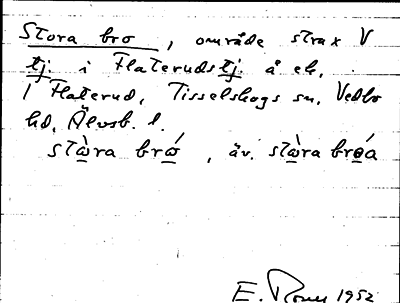 Stora bro, område strax V
tj. i Flaterudstj. å ek.
i Flaterud, Tisselskogs sn, Vedbo
hd, Älvsb. l.
stὼra brώ, äv. stὼra brɵ́a
E. 1952